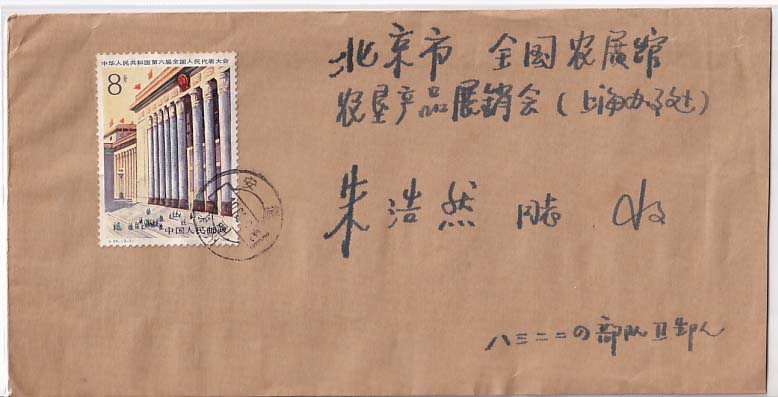 中华人民共和国第六届全国人民代表大会
8分
中国人民邮政
北京市 全国农展馆
农垦产品展销会(上海办事处)
朱浩然 同志 收
八三二二〇部队卫生队